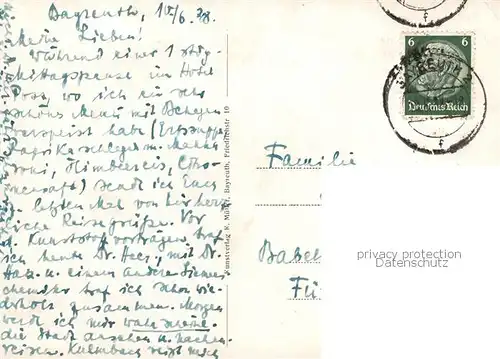 Bayreuth, 10/6. 38.
Meine Lieben!
Während einer 1 stdg.
Mittagspause im Hotel
Post, wo ich ein sehr
schönes Menü mit Behagen
verspeist habe (Erbssuppe
m. Makka
roni, Himbeereis,
) sende ich Euch
letzten Mal von hier herz
liche Reisegrüße. Vor
d. Kunststoffvorträgen traf
ich heute Dr. Hees, mit Dr.
u. einem anderen Siemens
chemiker traf ich schon wie-
derholt zusammen. Morgen
werde ich mir
die Stadt ansehen u. nachm.
reisen. Kulmbach reizt mich
Kunstverlag K. Müller, Bayreuth, Friedrichstr. 10
6 6
Deutsches Reich
Familie
Babel
Fü
privacy protection
Datenschutz